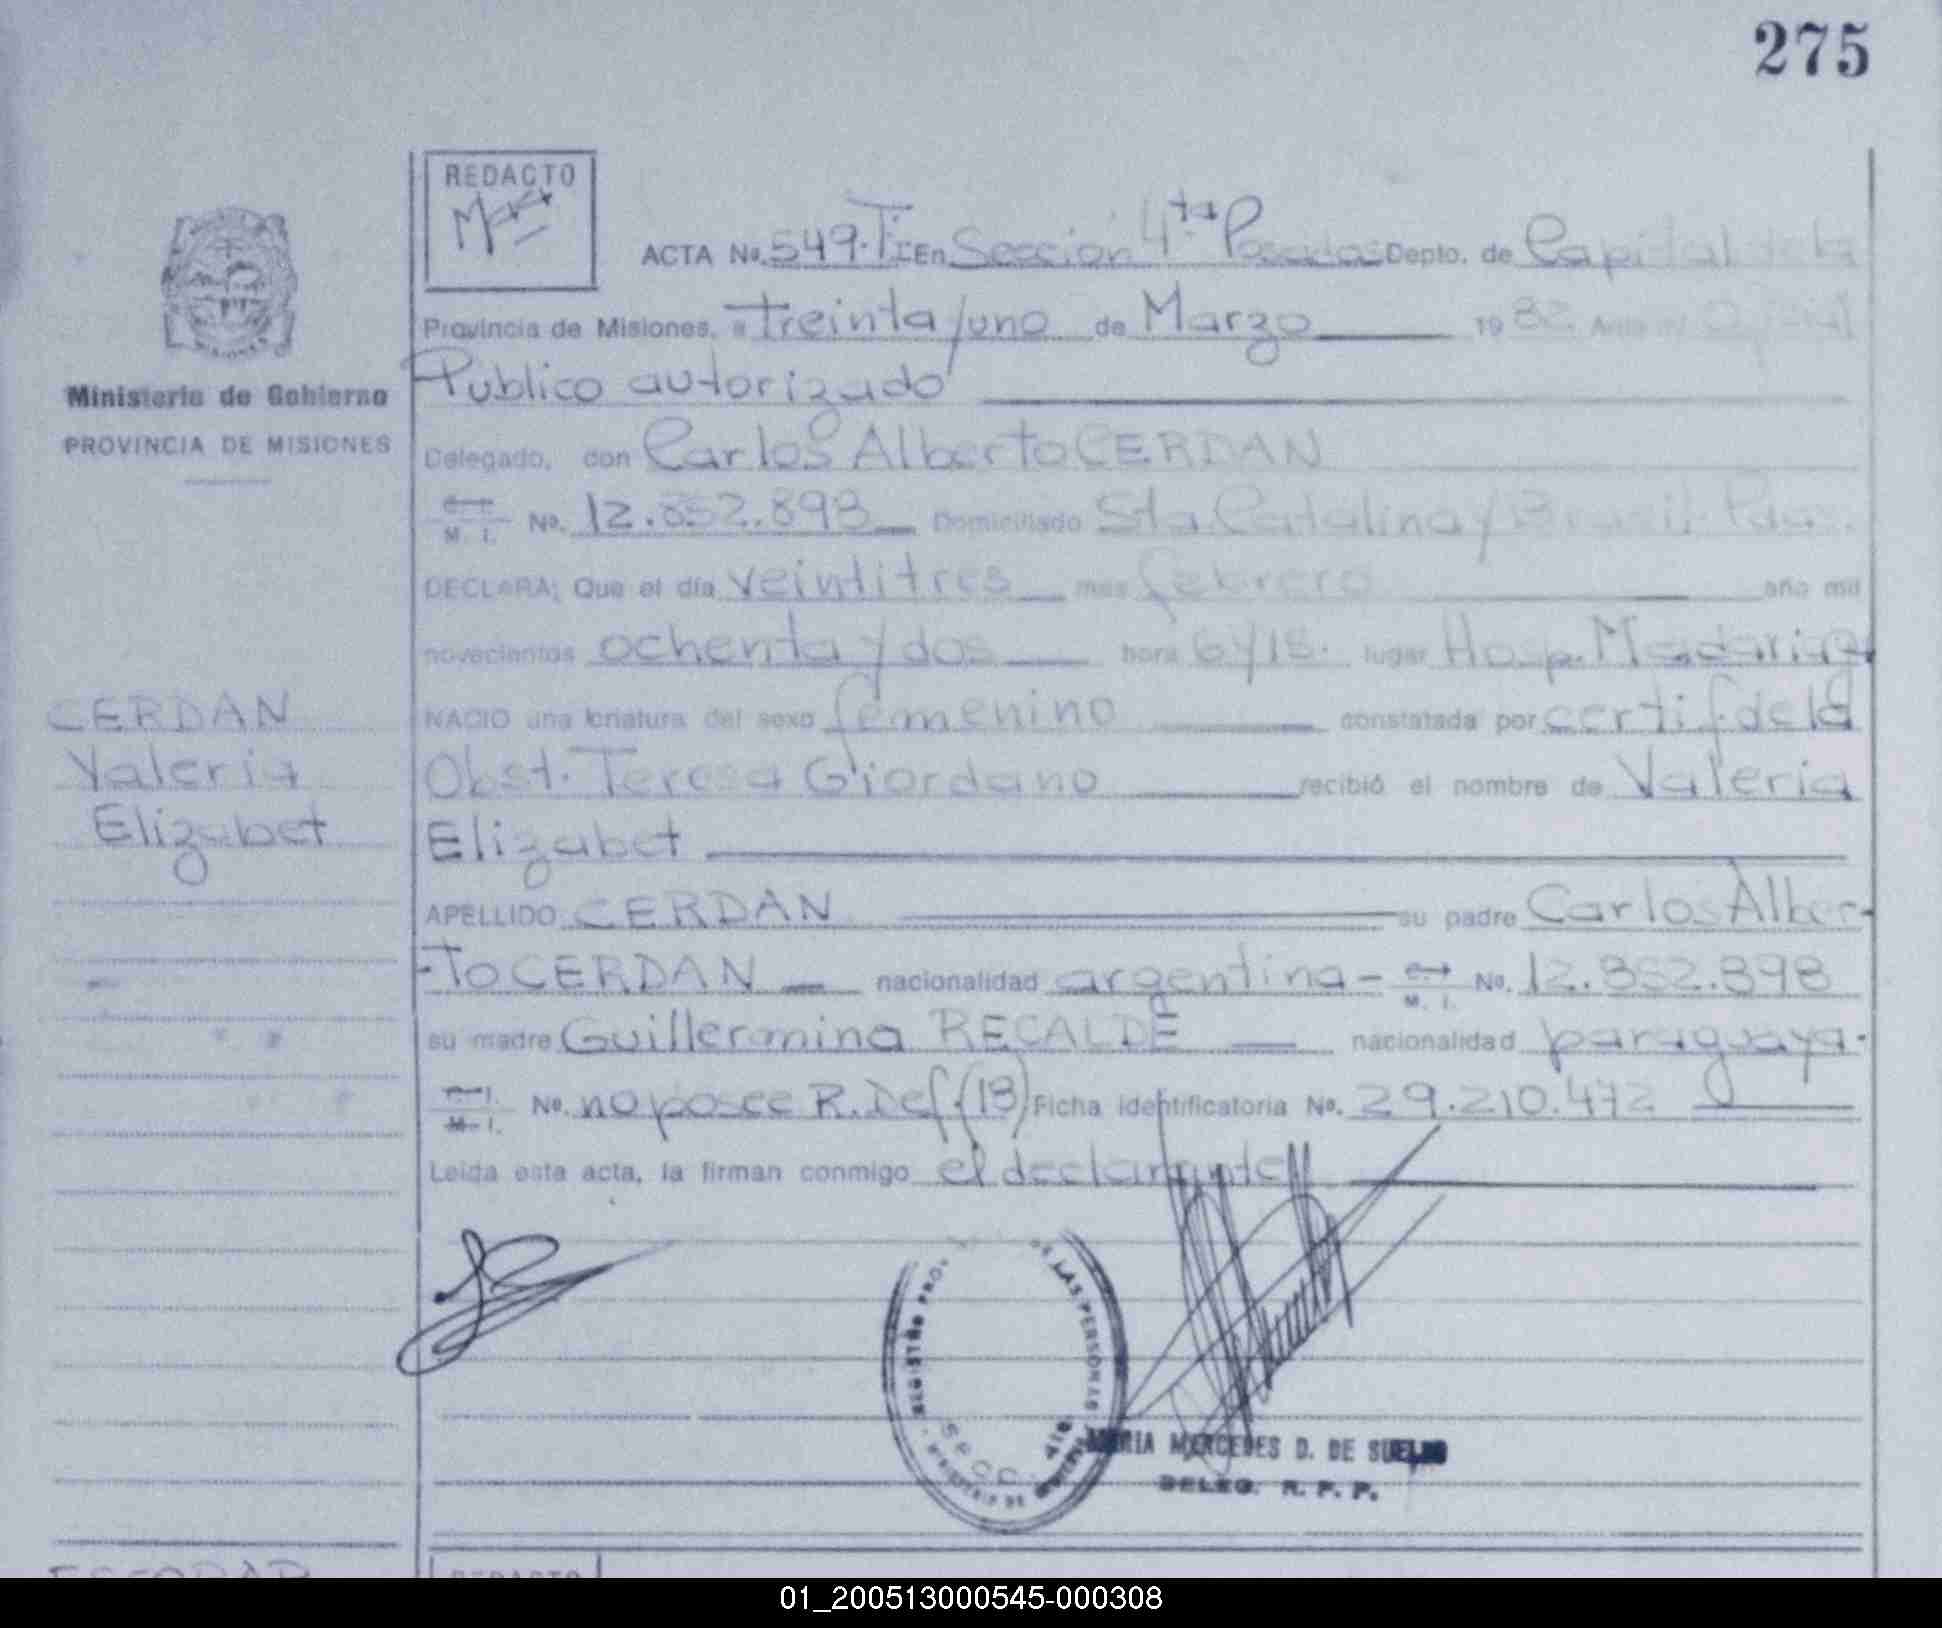 275
REDACTO
ACTA No. 549. TI En Sección 4ta Posadas Depto. de Capital de la
Provincia de Misiones, a treinta y uno de Marzo 1982 Ante mí Oficial
Ministerio de Gobierno
PROVINCIA DE MISIONES
Público autorizado
Delegado, don Carlos Alberto CERDAN
M. I. No. 12.852.898 Domiciliado Sta. Catalina y Brasil. Pdas.
DECLARA; Que el día veintitres mes febrero año mil
novecientos ochenta y dos hora 6 y 15. lugar Hosp. Madariaga
NACIO una criatura del sexo femenino constatada por certif. de la
Obst. Teresa Giordano recibió el nombre de Valeria
Elizabet
CERDAN
Valeria
Elizabet
APELLIDO CERDAN su padre Carlos Alber-
-to CERDAN nacionalidad argentina - M. I. No. 12.852.898
su madre Guillermina RECALDE nacionalidad paraguaya.
M. I. No. no posee R. Def. (13) Ficha identificatoria No. 29.210.472
Leída esta acta, la firman conmigo el declarante
REGISTRO PRO. DE LAS PERSONAS
MARIA MERCEDES D. DE
DELEG. R. P. P.
ESCOBAR
REDACTO
01_200513000545-000308